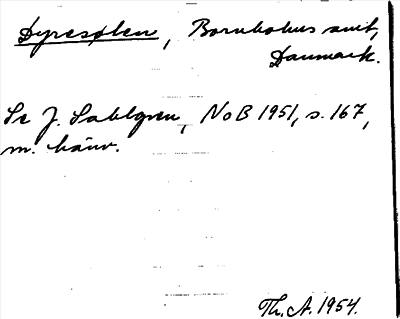 Dyresølen, Bornholms amt,
Danmark.
Se J. Sahlgren, NoB 1951, s. 167,
m. hänv.
Th. A. 1954.